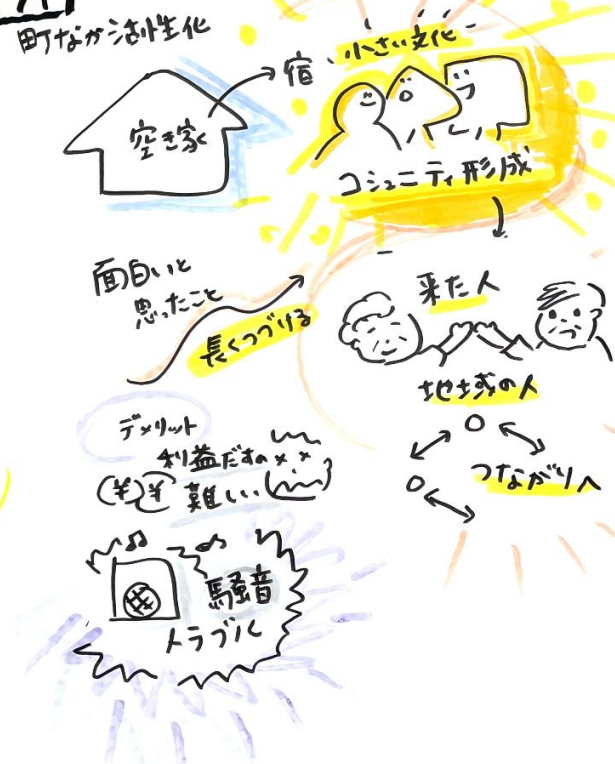 町なか活性化
空き家
宿・小さい文化
コミュニティ形成
面白いと
思ったこと
長くつづける
来た人
地域の人
つながりへ
デメリット
利益だすの
難しい…
¥ ¥
騒音
トラブル